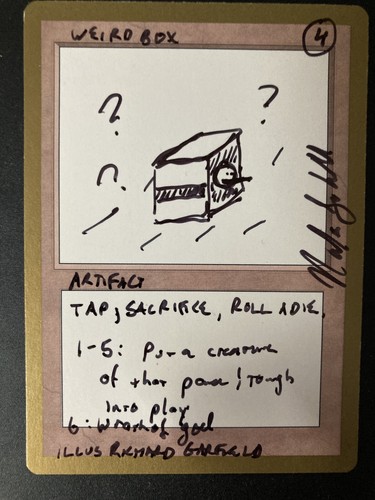 WEIRD BOX
4
?
?
?
ARTIFACT
TAP, SACRIFICE, ROLL A DIE.
1-5: Put a creature
of that power/tough
into play
6: Wrath of God
ILLUS RICHARD GARFIELD